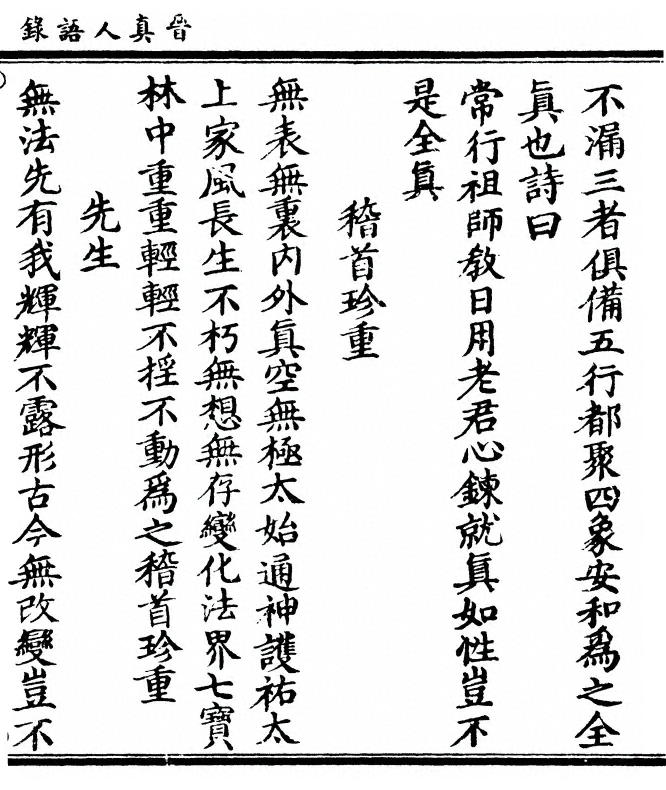 晉真人語錄
不漏三者俱備五行都聚四象安和爲之全
眞也詩曰
常行祖師敎日用老君心鍊就眞如性豈不
是全眞
稽首珍重
無表無裏內外眞空無極太始通神護祐太
上家風長生不朽無想無存變化法界七寶
林中重重輕輕不揺不動爲之稽首珍重
先生
無法先有我輝輝不露形古今無改變豈不